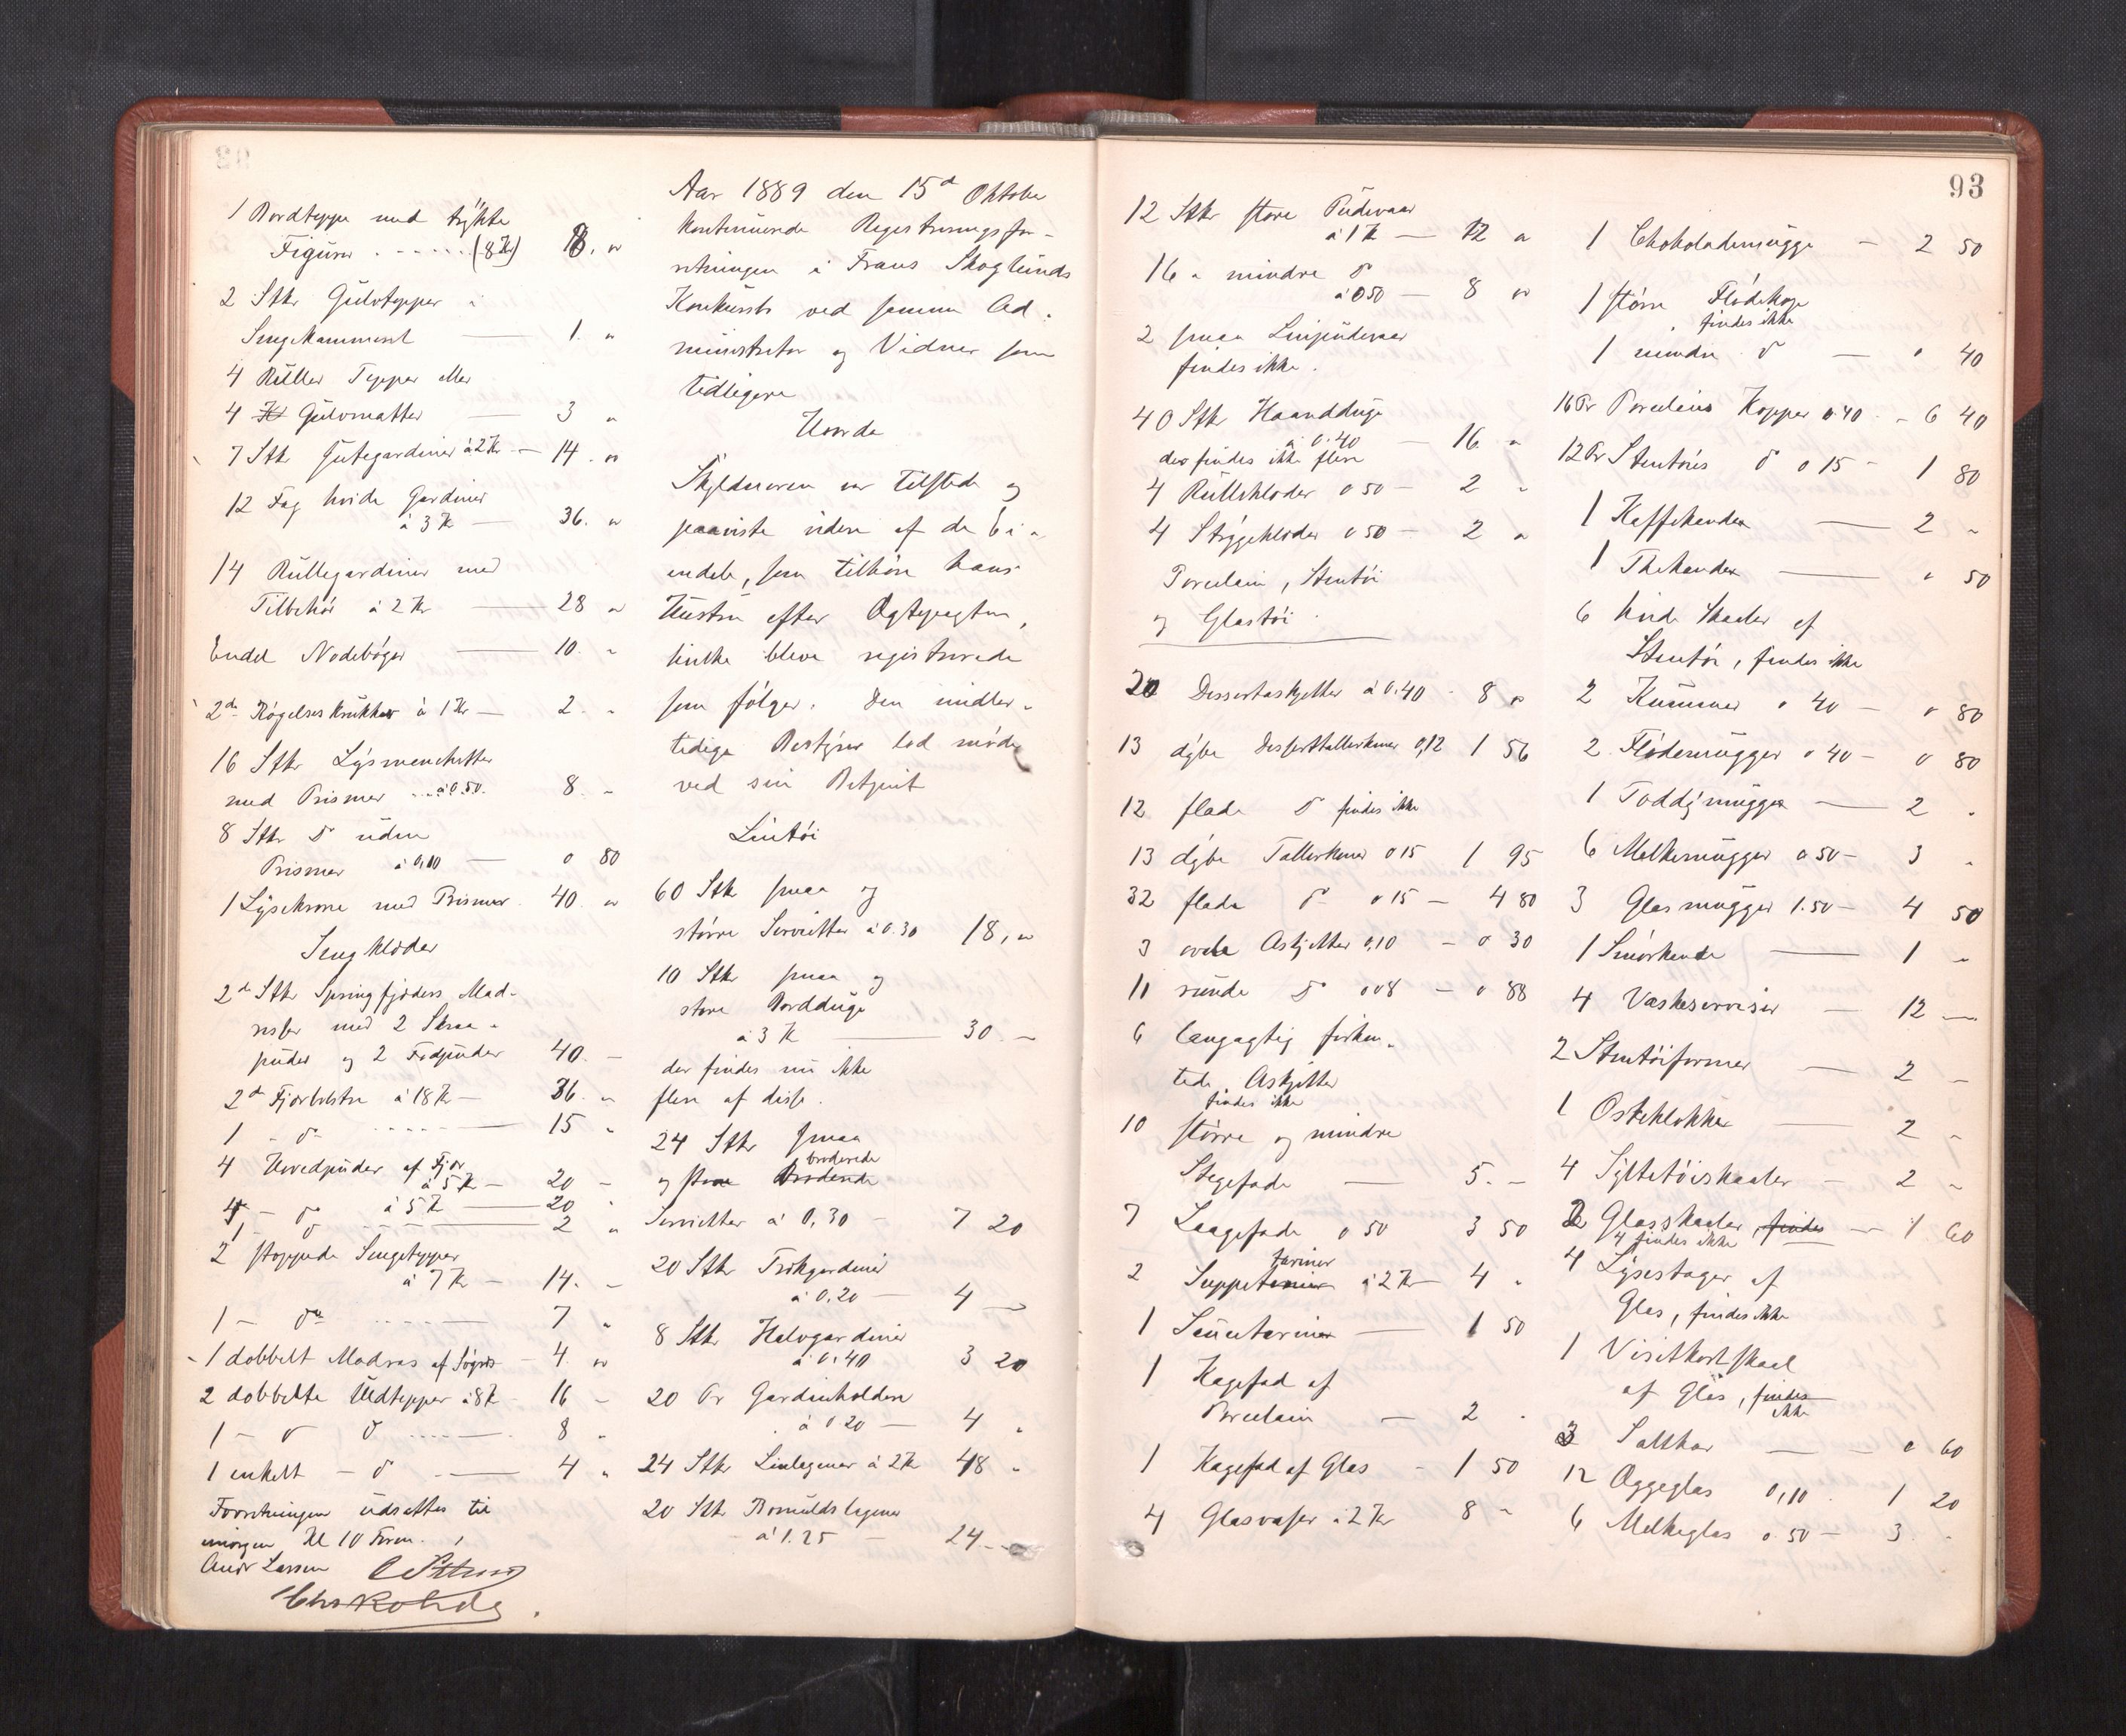 1 Bordteppe med trÿkte
Figurer . - - - - (8 Kr) 8. "
2 Stkr Gulvtepper i
Sengekammeret — 1. "
4 Ruller Tepper eller
4 Gulvmatter — 3 "
7 Stk Gutegardiner à 2 Kr — 14. "
12 Fag hvide Gardiner
à 3 Kr — 36. "
14 Rullegardiner med
Tilbehør à 2 Kr — 28 "
Endel Nodebøger — 10. "
2de Røgelseskrukker à 1 Kr — 2. "
16 Stkr Lÿsmanchetter
med Prismer à 0.50. 8. "
8 Stkr do uden
Prismer à 0,10 — 0 80
1 Lÿsekrone med Prismer 40. "
Sengklæder
2de Stkr Springfjæders Mad-
rasser med 2 Skraa-
puder og 2 Fodpuder 40. "
2de Fjærbolstre à 18 Kr — 36. "
1 - do - - - - 15 "
4 Hovedpuder af Fjær
à 5 Kr — 20 "
4 - do à 5 Kr — 20 "
1 - do — 2 "
2 stoppede Sengetepper
à 7 Kr — 14. "
1 - do - - - 7 "
1 dobbelt Madras af Søgræs - 4. "
2 dobbelte Uldtepper à 8 Kr 16 "
1 - do do - - - 8 "
1 enkelt - do - — 4 "
Forretningen udsættes til
imorgen Kl 10 Form.
Andr Larsen
Aar 1889 den 15de Oktober
kontinuerede Registreringsfor-
retningen i Frans Skoglunds
Konkursbo ved samme Ad-
ministrator og Vidner som
tidligere
Hvorda
Skyldneren var tilstede og
paaviste videre af de i
endele, som tilhøre hans
Hustru efter Ægtepagten,
hvilke bleve registrerede
som følger. Den midler-
tidige Bestÿrer lod møde
ved sin Betjent
Lintøi
60 Stk smaa og
større Servietter à 0.30 18, "
10 Stkr smaa og
store Bordduge
à 3 Kr — 30. —
der findes nu ikke
flere af disse.
24 Stkr smaa
broderede
og store Broderede
Servietter à 0,30 - 7 20
20 Stkr Trækgardiner
à 0,20 — 4 —
8 Stkr Halvgardiner
à 0,40 3 20
20 Pr Gardinholdere
à 0 20 — 4 "
24 Stkr Linlagener à 2 Kr 48 "
20 Stkr Bomuldslagener
à 1.25 — 24. —
93
12 Stkr store Pudevaar
à 1 Kr — 12 "
16 " mindre do
à 0 50 — 8 "
2 smaa Linpudevaar
findes ikke.
40 Stkr Haandduge
à 0.40 — 16. "
der findes ikke flere
4 Rulleklæder 0 50 — 2 "
4 Strÿgeklæder 0 50 — 2 "
Porcelain, Stentøi
og Glastøi
20 Dessertaskjetter à 0,40 - 8 "
13 dÿbe Desserttallerkener 0,12 1 56
12 flade do findes ikke
13 dÿbe Tallerkener 0 15 1 95
32 flade do 0 15 — 4 80
3 ovale Askjetter 0,10 — 0 30
11 runde do 0 08 — 0 88
6 langagtig firkan-
tede Askjetter
findes ikke
10 større og mindre
Stegefade — 5. —
7 Laagefade 0 50 3 50
2 Suppeterriner terriner à 2 Kr 4 "
1 Sauceterrine — 1 50
1 Kagefad af
Porcelain — 2 "
1 Kagefad af Glas - 1 50
4 Glasvaser à 2 Kr 8 "
1 Chokolademugge — 2 50
1 større Flødekop
findes ikke
1 mindre do — 0 40
16 Pr Porcelains Kopper 0.40 - 6 40
12 Pr Stentøis do 0 15 - 1 80
1 Kaffekande — 2 "
1 Thekande — 0 50
6 hvide Skaaler af
Stentøi, findes ikke
2 Kummer 0 40 — 0 80
2 Flødemugger 0 40 — 0 80
1 Toddÿmugge — 2 "
6 Melkemugger 0 50 — 3 "
3 Glasmugger 1.50 — 4 50
1 Smørkande — 1 "
4 Vaskeserviser — 12 —
2 Stentøiformer — 2 —
1 Osteklokke — 2 "
4 Sÿltetøiskaaler — 2 "
2 Glasskaaler findes — 1 60
4 findes ikke
4 Lÿsestager af
Glas, findes ikke
1 Visitkortskaal
af Glas, findes
ikke
3 Saltkar — — 0 60
12 Æggeglas 0,10 1 20
6 Melkeglas 0.50 — 3. "